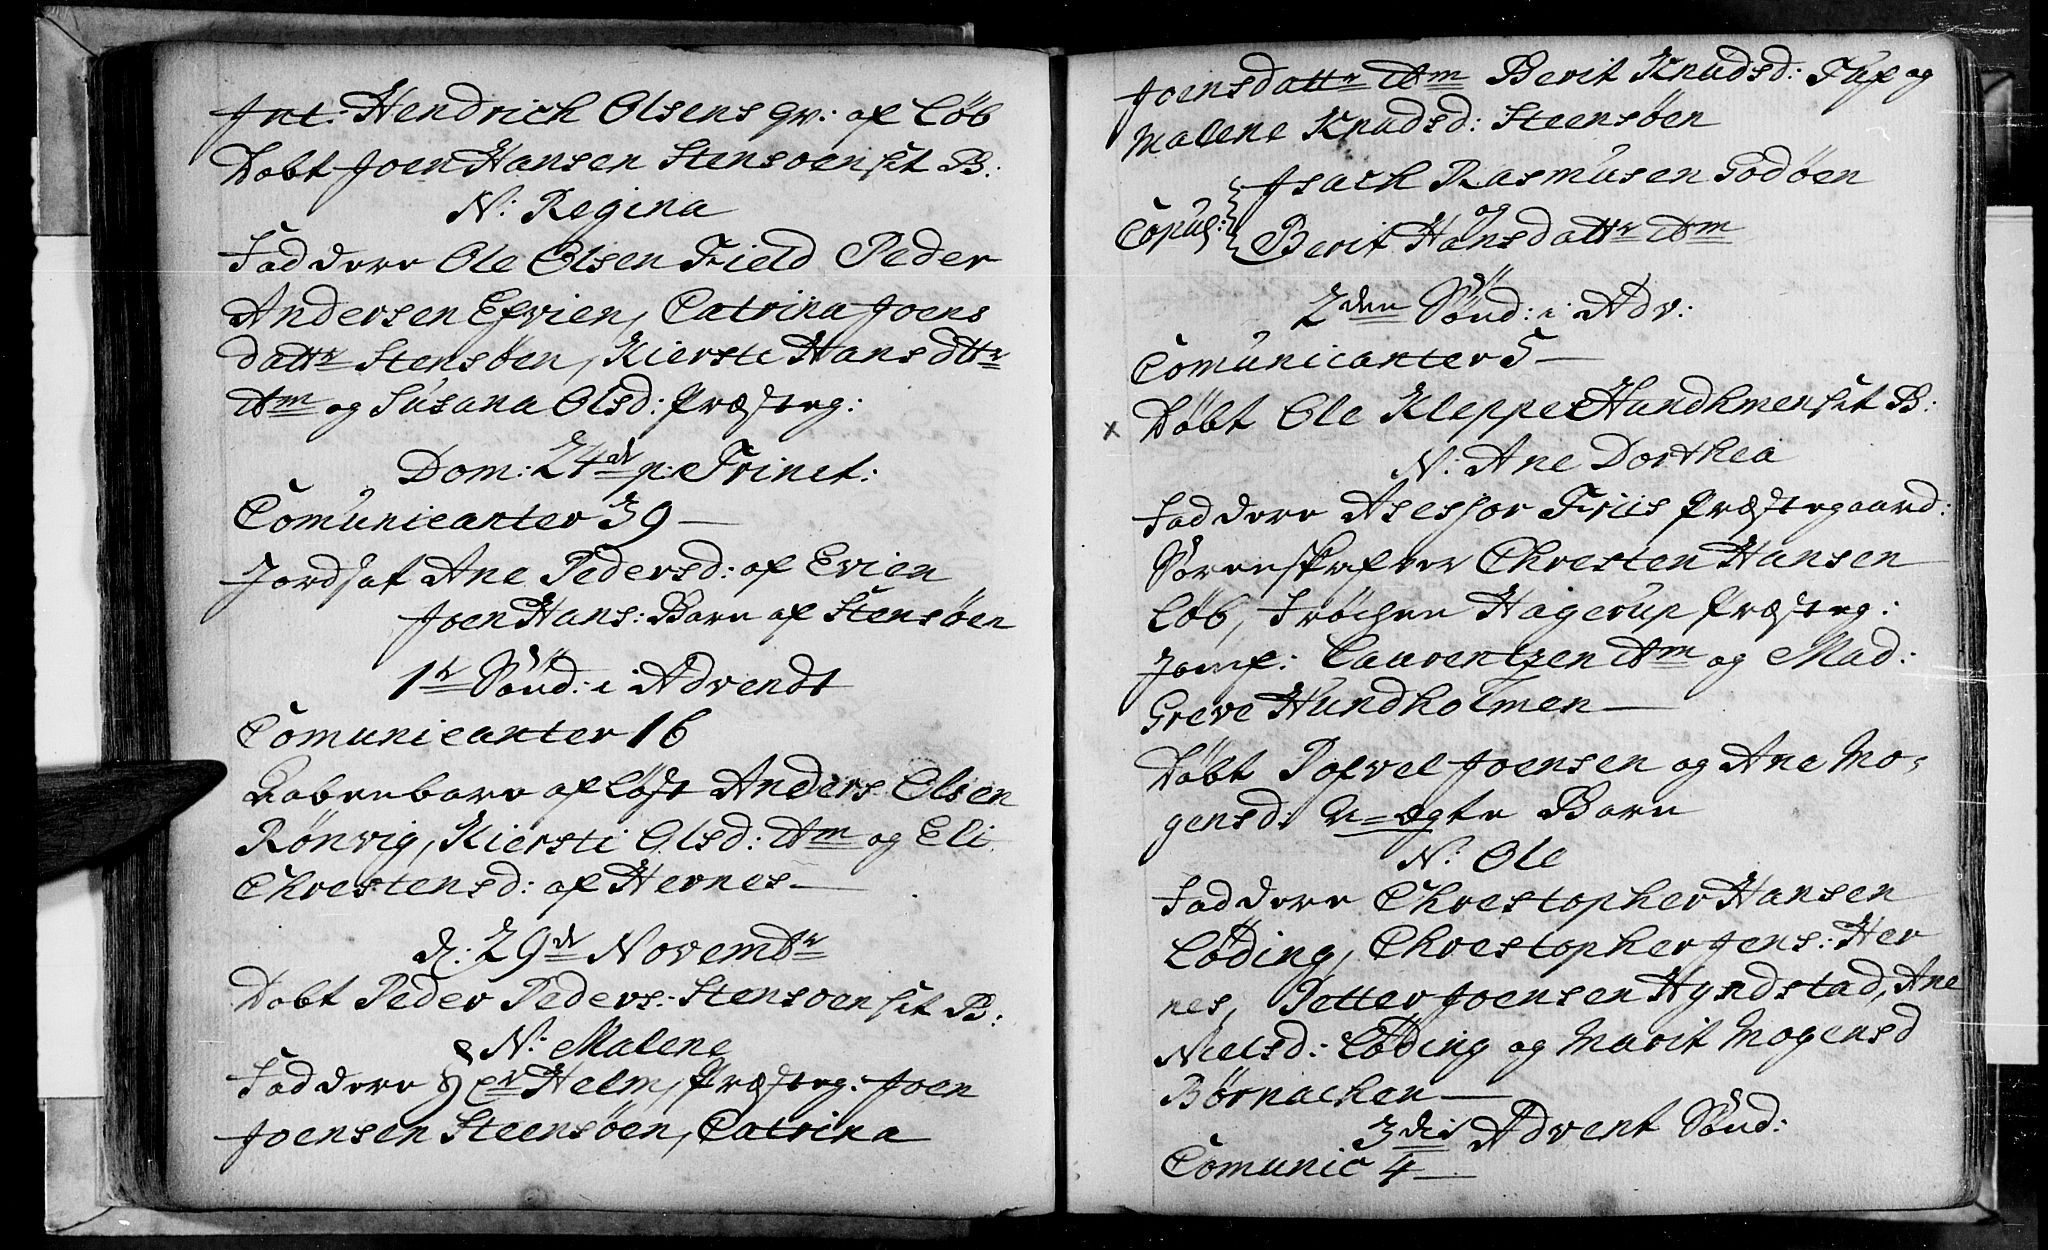 Int: Hendrich Olsens qv: af Løb
Døbt Joen Hansen Stensøen sit B:
N: Regina
Faddere Ole Olsen Field Peder
Andersen Efvien, Catrina Joens
dattr Stensøen, Kiersti Hansdttr
ibm og Susana Olsd: Præsteg:
Dom: 24de p: Trinet:
Comunicanter 39
Jordsat Ane Pedersd: af Evien
Joen Hans: Barn af Stensøen
1te Sönd: i Advendt
Comunicanter 16
Aabenbare afløst Anders Olsen
Rønvig, Kiersti Olsd: ibm og Eli
Chrestensd: af Hernes
d: 29de Novembr
Døbt Peder Peders: Stensøen sit B:
N: Malene
Faddere Hr Helm, Præsteg: Joen
Joensen Steensøen, Catrina
Joensdattr ibm Berit Knudsd: og
Malene Knudsd: Steensøen
Isach Rasmusen Godøen
og
Copul: Berit Hansdattr ibm
2den Sönd: i Adv:
Comunicanter 5
x Døbt Ole Kleppe Hundhmen sit B:
N: Ane Dorthea
Faddere Asessor Friis Præstegaard:
Sorenskrifver Chresten Hansen
Løb, Frøichen Hagerup Præsteg:
Jomf: Laurentzen ibm og Mad:
Greve Hundholmen
Døbt Pofvel Joensen og Ane Mo-
gensd: U-ægte Barn
N: Ole
Faddere Chrestopher Hansen
Løding, Chrestopher Jens: Her
nes, Petter Joensen Hyndstad, Ane
Nielsd: Løding og Marit Mogensd
Børnachen
3die Advent Sönd:
Comunic 4